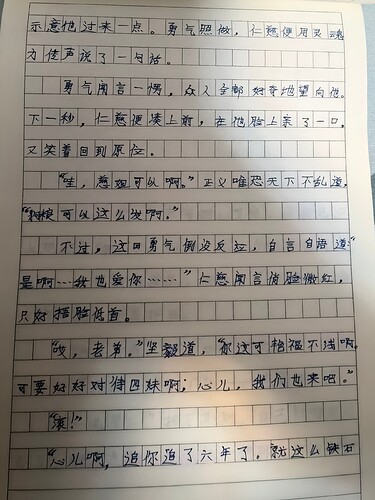 示意他过来一点。勇气照做，仁慈便用灵魂
方能声说了一句话。
勇气闻言一愣，众人全都好奇地望向他。
下一秒，仁慈便凑上前，在他脸上亲了一口，
又笑着回到原位。
“哇，慈姐可以啊。”正义唯恐天下不乱道，
可以这么发啊。”
不过，这回勇气倒没反应，自言自语道：“
是啊……我也爱你……”仁慈闻言俏脸微红，
只好捂脸低首。
“哎，老弟。”坚毅道，“你这可福不浅啊，
可要好好对待四妹啊；心儿，我们也来吧。”
“滚！”
“心儿啊，追你追了六年了，就这么铁石